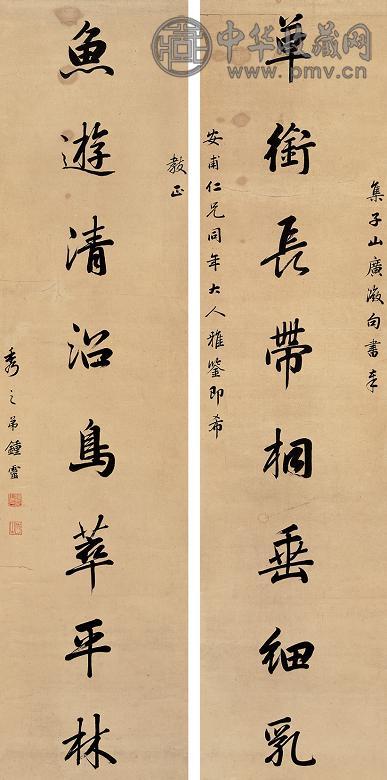 中华收藏网
www.pmv.cn
集子山廣微句書奉
草銜長帶桐垂細乳
安甫仁兄同年大人雅鑒即希
教正
魚遊清沼鳥萃平林
秀之弟鍾靈